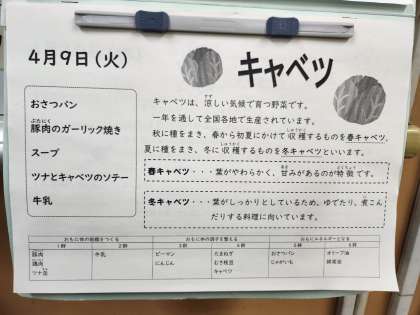 4月9日(火)
キャベツ
おさつパン
豚肉のガーリック焼き
スープ
ツナとキャベツのソテー
牛乳
キャベツは、涼しい気候で育つ野菜です。
一年を通して全国各地で生産されています。
秋に種をまき、春から初夏にかけて収穫するものを春キャベツ、
夏に種をまき、冬に収穫するものを冬キャベツといいます。
春キャベツ・・・葉がやわらかく、甘みがあるのが特徴です。
冬キャベツ・・・葉がしっかりとしているため、ゆでたり、煮こん
だりする料理に向いています。
おもに体の組織をつくる おもに体の調子を整える おもにエネルギーとなる
1群 2群 3群 4群 5群 6群
豚肉 牛乳 ピーマン たまねぎ おさつパン オリーブ油
鶏肉 にんじん むき枝豆 じゃがいも
ツナ缶 キャベツ